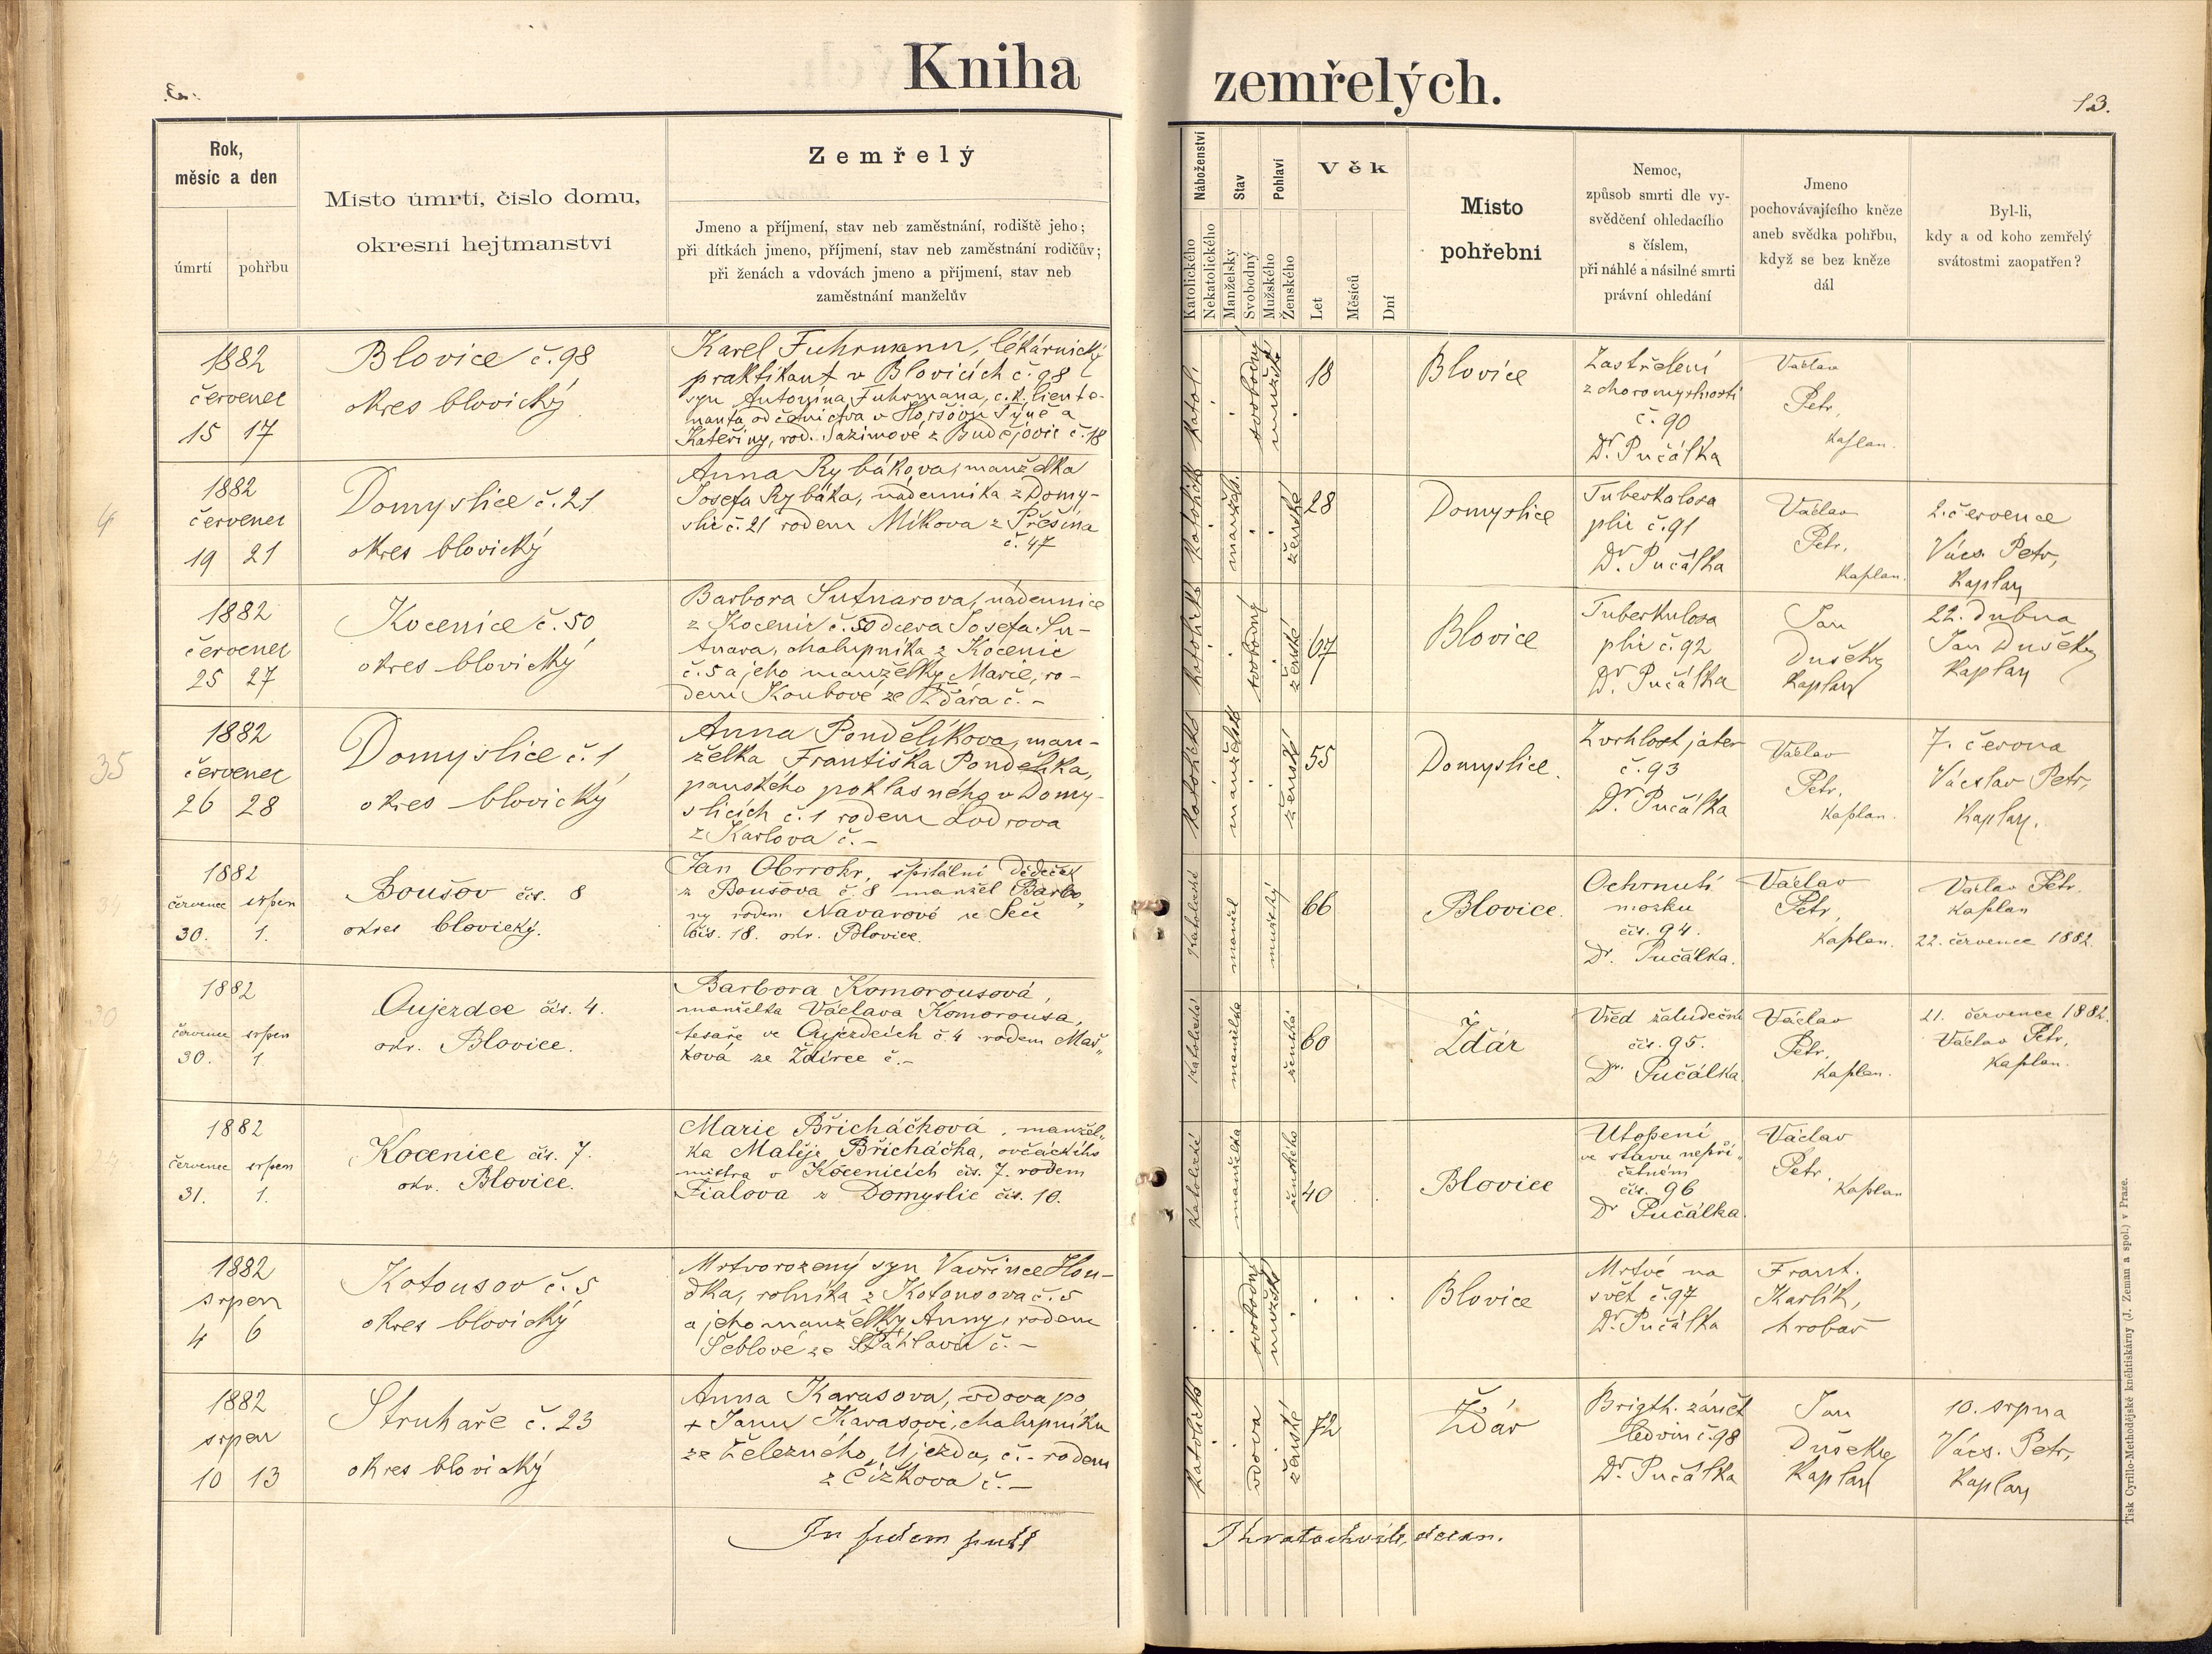 Kniha zemřelých.
13.
Rok,
měsíc a den
úmrtí
pohřbu
Místo úmrtí, číslo domu,
okresní hejtmanství
Zemřelý
Jmeno a příjmení, stav neb zaměstnání, rodiště jeho;
při dítkách jmeno, příjmení, stav neb zaměstnání rodičův;
při ženách a vdovách jmeno a příjmení, stav neb
zaměstnání manželův
Náboženství
Katolického
Nekatolického
Stav
Manželský
Svobodný
Pohlaví
Mužského
Ženského
Věk
Let
Měsíců
Dní
Místo
pohřební
Nemoc,
způsob smrti dle vy-
svědčení ohledacího
s číslem,
při náhlé a násilné smrti
právní ohledání
Jmeno
pochovávajícího kněze
aneb svědka pohřbu,
když se bez kněze
dál
Byl-li,
kdy a od koho zemřelý
svátostmi zaopatřen?
1882
červenec
15 17
Blovice č. 98
okres blovický
Karel Fuhrmann, lékárnický
praktikant v Blovicích č. 98
syn Antonína Fuhrmana, c. k. lieute-
nanta od četnictva v Horšově Týně a
Kateřiny, rod. Sazimové z Budějovic č. 18
katol.
svobodný
mužské
18
Blovice
Zastřelení
z choromyslnosti
č. 90
Dr. Pučálka
Václav
Petr,
kaplan.
1882
červenec
19 21
Domyslice č. 21
okres blovický
Anna Rybáková, manželka
Josefa Rybáka, nádenníka z Domy-
slic č. 21 rodem Míkova z Přešína
č. 47
katolické
manžels.
ženské
28
Domyslice
Tuberkulosa
plic č. 91
Dr. Pučálka
Václav
Petr,
kaplan.
2. července
Vács. Petr,
kaplan
1882
červenec
25 27
Kocenice č. 50
okres blovický
Barbora Sutnarova, nádennice
z Kocenic č. 50 dcera Josefa Su-
tnara, chalupníka z Kocenic
č. 5 a jeho manželky Marie, ro-
dem Koubové ze Ždára č. -
katolické
svobodný
ženské
67
Blovice
Tuberkulosa
plic č. 92
Dr. Pučálka
Jan
Dušek
kaplan
22. dubna
Jan Dušek
kaplan
35
1882
červenec
26 28
Domyslice č. 1
okres blovický
Anna Pondělíkova, man-
želka Františka Pondělíka,
panského poklasného v Domy-
slicích č. 1 rodem Lodrova
z Karlova č. -
katolické
manželské
ženské
55
Domyslice.
Zvrhlost jater
č. 93
Dr. Pučálka
Václav
Petr,
kaplan.
7. června
Václav Petr,
kaplan.
1882
července srpen
30. 1.
Boušov čís. 8
okres blovický.
Jan Obrrohr, špitální dědeček
z Boušova č. 8 manžel Barbo„
ry rodem Navarové ze Seče
čís. 18. okr. Blovice.
katolické
manžel
mužský
66
Blovice.
Ochrnutí
mozku
čís. 94.
Dr. Pučálka.
Václav
Petr,
kaplan.
Václav Petr.
kaplan
22. července 1882.
30
1882
července srpen
30. 1
Oujezdec čís. 4.
okr. Blovice.
Barbora Komorousová,
manželka Václava Komorousa,
tesaře ve Oujezdcích č. 4 rodem Maš„
ková ze Ždírce č. -
manželka
ženská
60
Ždár
Vřed žaludeční
čís. 95.
Dr. Pučálka.
Václav
Petr,
kaplan.
21. července 1882.
Václav Petr,
kaplan.
1882
července srpen
31. 1.
Kocenice čís. 7.
okr. Blovice.
Marie Břicháčková, manžel„
ka Matěje Břicháčka, ovčáckého
mistra v Kocenicích čís. 7. rodem
Fialova z Domyslic čís. 10.
katolické
manželka
ženského
40
Blovice
Utopení
ve stavu nepří„
četném
čís. 96
Dr Pučálka.
Václav
Petr,
kaplan
1882
srpen
4 6
Kotousov č. 5
okres blovický
Mrtvorozený syn Vavřince Hou-
dka, rolníka z Kotousova č. 5
a jeho manželky Anny, rodem
Šeblové ze Šťáhlavic č. -
svobodný
mužské
Blovice
Mrtvé na
svět č. 97
Dr. Pučálka
Frant.
Karlík,
hrobař
1882
srpen
10 13
Struhaře č. 23
okres blovický
Anna Karasova, vdova po
+ Janu Karasovi, chalupníku
ze Železného Ujezda, č. - rodem
z Čížkova č. -
katolické
vdova
ženské
72
Ždár
Brigth. zánět
ledvin č. 98
Dr. Pučálka
Jan
Dušek
kaplan
10. srpna
Vács. Petr,
kaplan
Tisk Cyrillo-Methodějské kněhtiskárny (J. Zeman a spol.) v Praze.